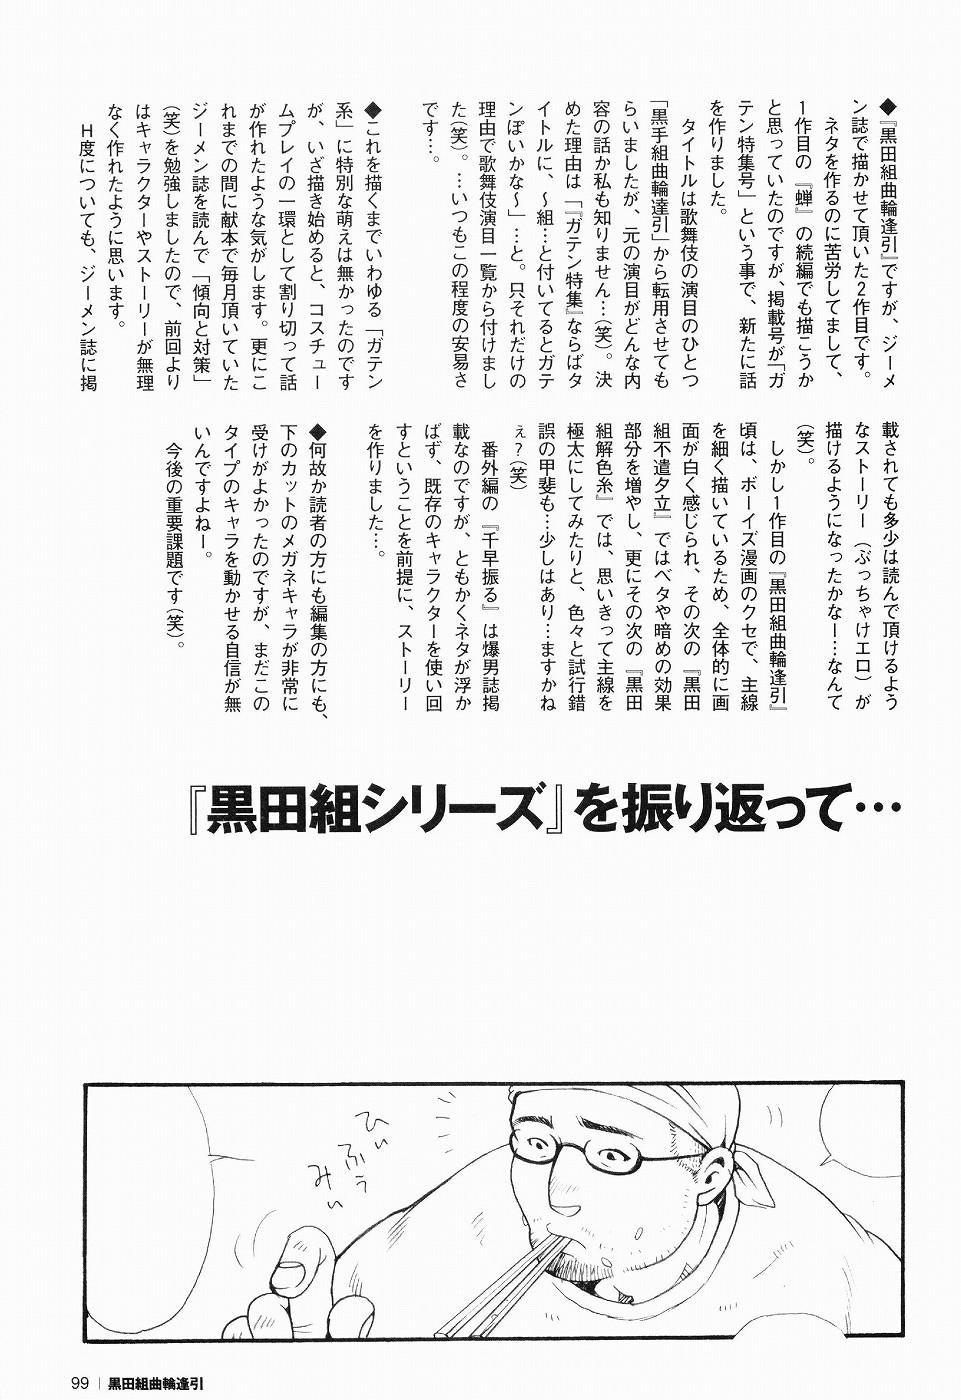 ◆『黒田組曲輪逢引』ですが、ジーメ
ン誌で描かせて頂いた2作目です。
ネタを作るのに苦労してまして、
1作目の『蝉』の続編でも描こうか
と思っていたのですが、掲載号が「ガ
テン特集号」という事で、新たに話
を作りました。
タイトルは歌舞伎の演目のひとつ
「黒手組曲輪達引」から転用させても
らいましたが、元の演目がどんな内
容の話か私も知りません…(笑)。決
めた理由は「『ガテン特集』ならばタ
イトルに、～組…と付いてるとガテ
ンぽいかな～」…と。只それだけの
理由で歌舞伎演目一覧から付けまし
た(笑)。…いつもこの程度の安易さ
です…。
◆これを描くまでいわゆる「ガテン
系」に特別な萌えは無かったのです
が、いざ描き始めると、コスチュー
ムプレイの一環として割り切って話
が作れたような気がします。更にこ
れまでの間に献本で毎月頂いていた
ジーメン誌を読んで「傾向と対策」
(笑)を勉強しましたので、前回より
はキャラクターやストーリーが無理
なく作れたように思います。
H度についても、ジーメン誌に掲
載されても多少は読んで頂けるよう
なストーリー（ぶっちゃけエロ）が
描けるようになったかなー…なんて
(笑)。
しかし1作目の『黒田組曲輪逢引』
頃は、ボーイズ漫画のクセで、主線
を細く描いているため、全体的に画
面が白く感じられ、その次の『黒田
組不遣夕立』ではベタや暗めの効果
部分を増やし、更にその次の『黒田
組解色糸』では、思いきって主線を
極太にしてみたりと、色々と試行錯
誤の甲斐も…少しはあり…ますかね
ぇ？(笑)
番外編の『千早振る』は爆男誌掲
載なのですが、ともかくネタが浮か
ばず、既存のキャラクターを使い回
すということを前提に、ストーリー
を作りました…。
◆何故か読者の方にも編集の方にも、
下のカットのメガネキャラが非常に
受けがよかったのですが、まだこの
タイプのキャラを動かせる自信が無
いんですよねー。
今後の重要課題です(笑)。
『黒田組シリーズ』を振り返って…
ひぃ
ふぅ
みぃ
99｜黒田組曲輪逢引